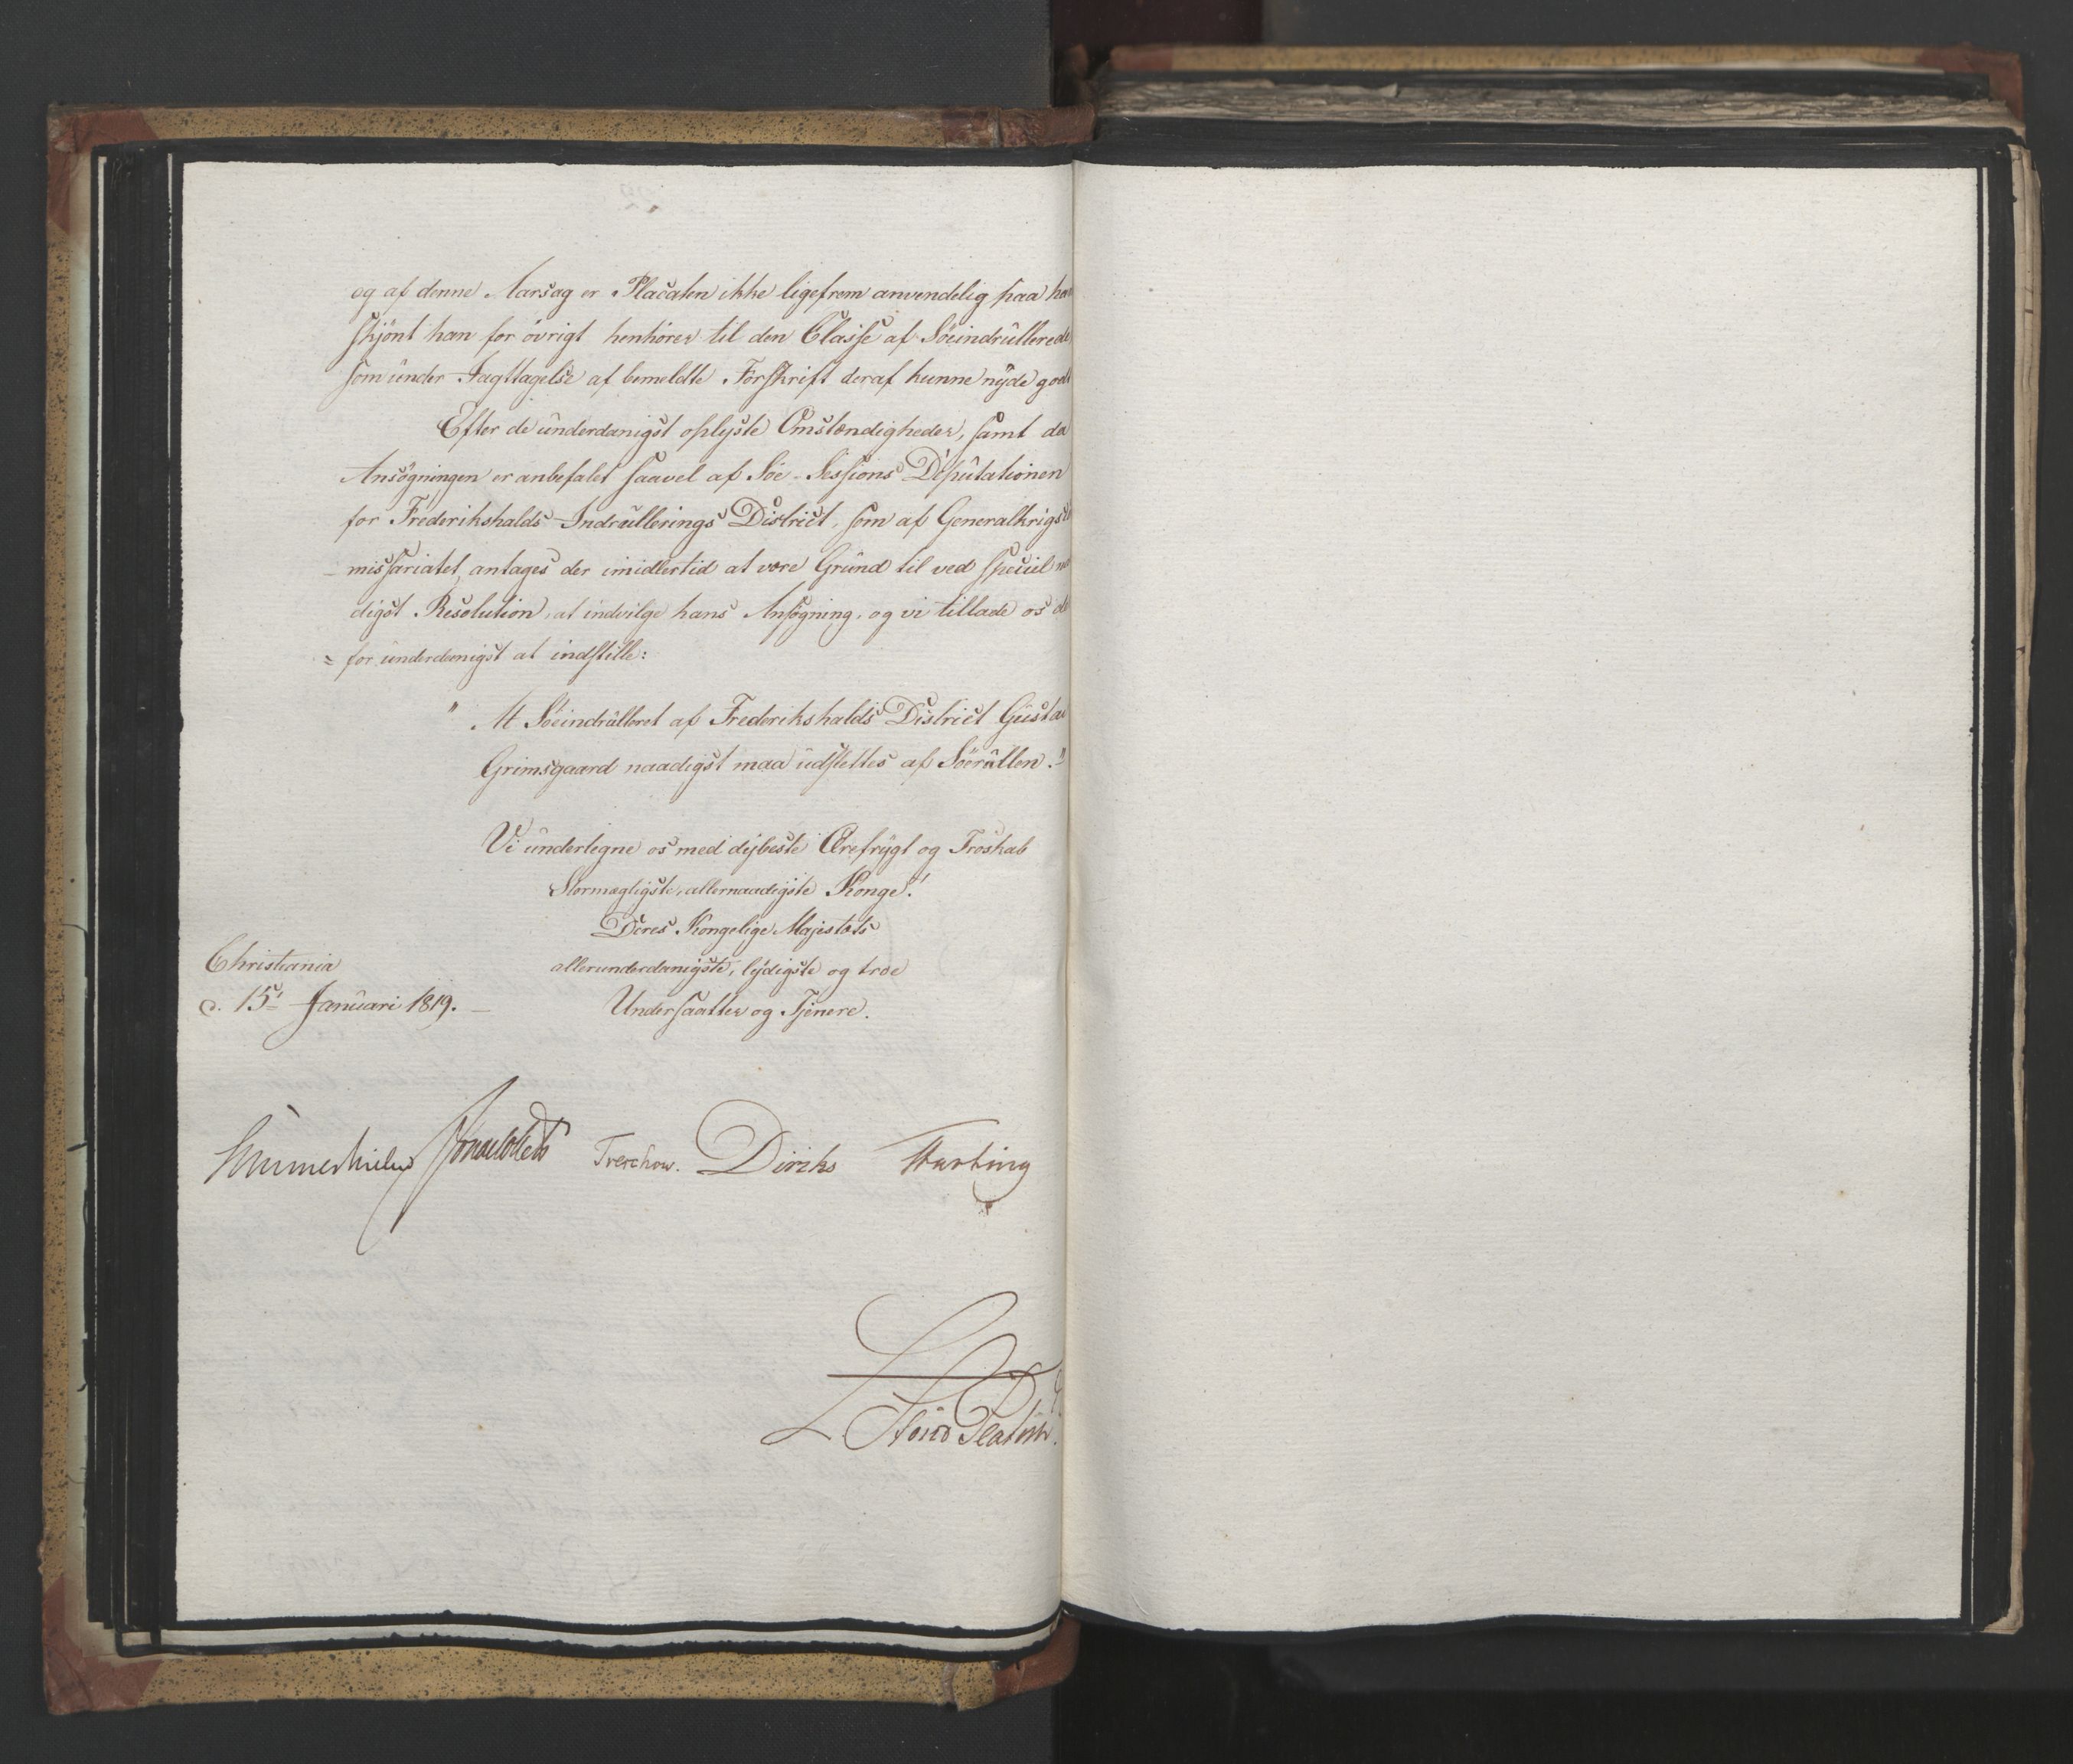 og af denne Aarsag er Placaten ikke ligefrem anvendelig paa ha
skjönt han for övrigt henhörer til den Classe af Söeindrullerede
som under Iagttagelse af bemeldte Forskrift deraf kunne nyde godt
Efter de underdanigst oplyste Omstændigheder, samt da
Ansögningen er anbefalet saavel af Söe-Sessions Deputationen
for Frederikshalds Indrullerings District, som af Generalkrigs
missariatet, antages der imidlertid at være Grund til ved speciel
digst Resolution, at indvilge hans Ansögning, og vi tillade os de
for underdanigst at indstille:
" At Söeindrulleret af Frederikshalds District Gustav
Grimsgaard naadigst maa udslettes af Söerullen."
Vi undertegne os med dybeste Ærefrygt og Troskab
Stormægtigste, allernaadigste Konge!
Deres Kongelige Majestæts
allerunderdanigste, lydigste og troe
Undersaatter og Tjenere.
Christiania
d. 15' Januari 1819.
Sommerhielm Treschow. Diriks